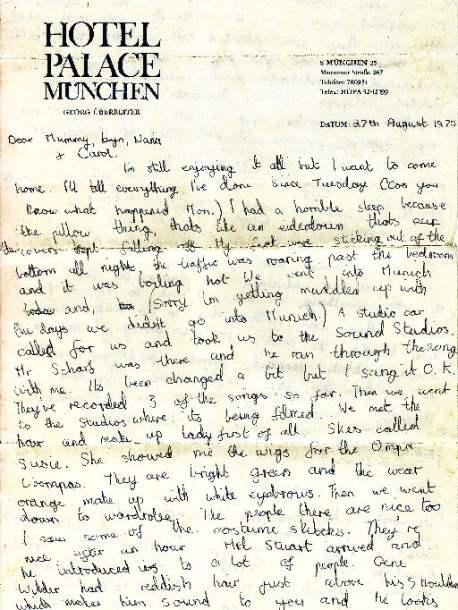 HOTEL
PALACE
MÜNCHEN
8 MÜNCHEN 25
DATUM: 27th August 1970
Dear Mummy, Nana
& Carol.
I'm still enjoying it all but I want to come
home. I'll tell everything I've done since Tuesday (Cos you
know what happened Mon.) I had a horrible sleep because
the pillow thing thats like an eiderdown thats
the covers kept falling off My feet were sticking out of the
bottom all night the traffic was roaring past the bedroom
and it was boiling hot We went into Munich
and, (Sorry I'm getting muddled up with
the days we didn't go into Munich) A studio car
called for us and took us to the Sound Studios.
Mr Scharf was there and he ran through the song
with me. Its been changed a bit but I sang it O.K.
They've recorded 3 of the songs so far. Then we went
to the studios where its being filmed. We met the
hair and make-up lady first of all She's called
Susie. She showed me the wigs for the Ompa
Loompas. They are bright green and the wear
orange make up with white eyebrows. Then we went
down to wardrobe. The people there are nice too
I saw some of the costume sketches. They're
nice after an hour Mel Stuart arrived and
he introduced us to a lot of people. Gene
Wilder had reddish hair just above his shoulders
which makes him sound to you and he looks